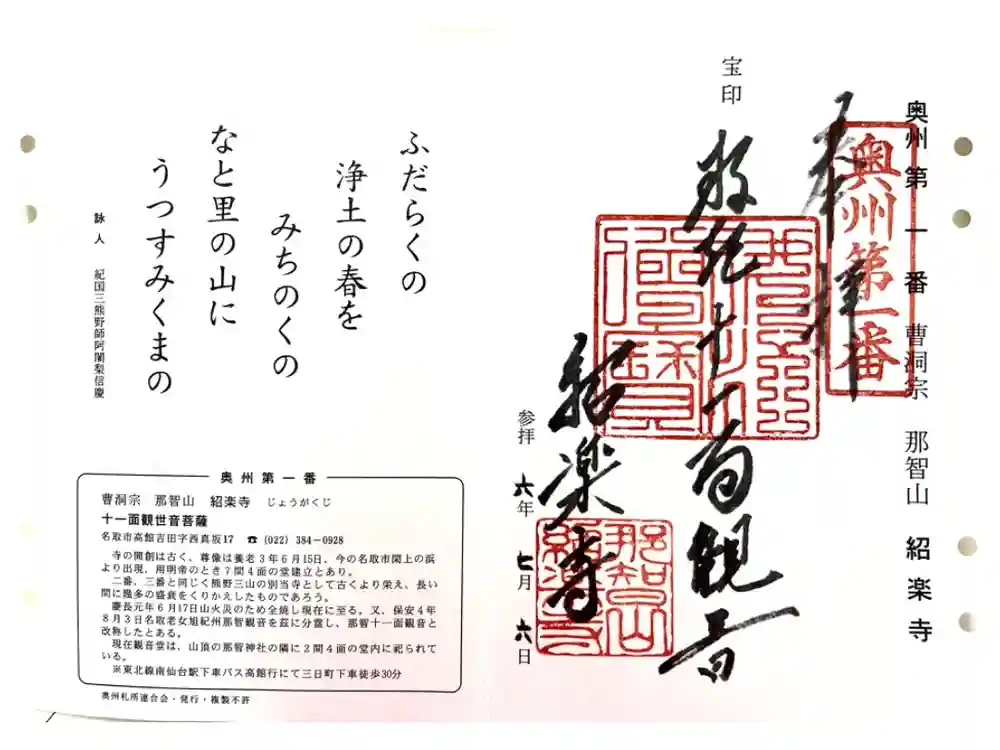 奥州第一番 曹洞宗 那智山 紹楽寺
奥州第一番
奉拝
宝印
那智十一面観音
紹楽寺
那智山
紹楽寺
参拝 六年 七月 六日
ふだらくの
浄土の春を
みちのくの
なと里の山に
うつすみくまの
詠人 紀国三熊野師阿闍梨信慶
奥州第一番
曹洞宗 那智山 紹楽寺 じょうがくじ
十一面観世音菩薩
名取市高館吉田字西真坂17 ☎(022) 384-0928
寺の開創は古く、尊像は養老3年6月15日、今の名取市閖上の浜
より出現、用明帝のとき7間4面の堂建立とあり。
二番、三番と同じく熊野三山の別当寺として古くより栄え、長い
間に幾多の盛衰をくりかえしたものであろう。
慶長元年6月17日山火災のため全焼し現在に至る。又、保安4年
8月3日名取老女旭紀州那智観音を茲に分霊し、那智十一面観音と
改称したとある。
現在観音堂は、山頂の那智神社の隣に2間4面の堂内に祀られて
いる。
※東北線南仙台駅下車バス高館行にて三日町下車徒歩30分
奥州札所連合会・発行・複製不許